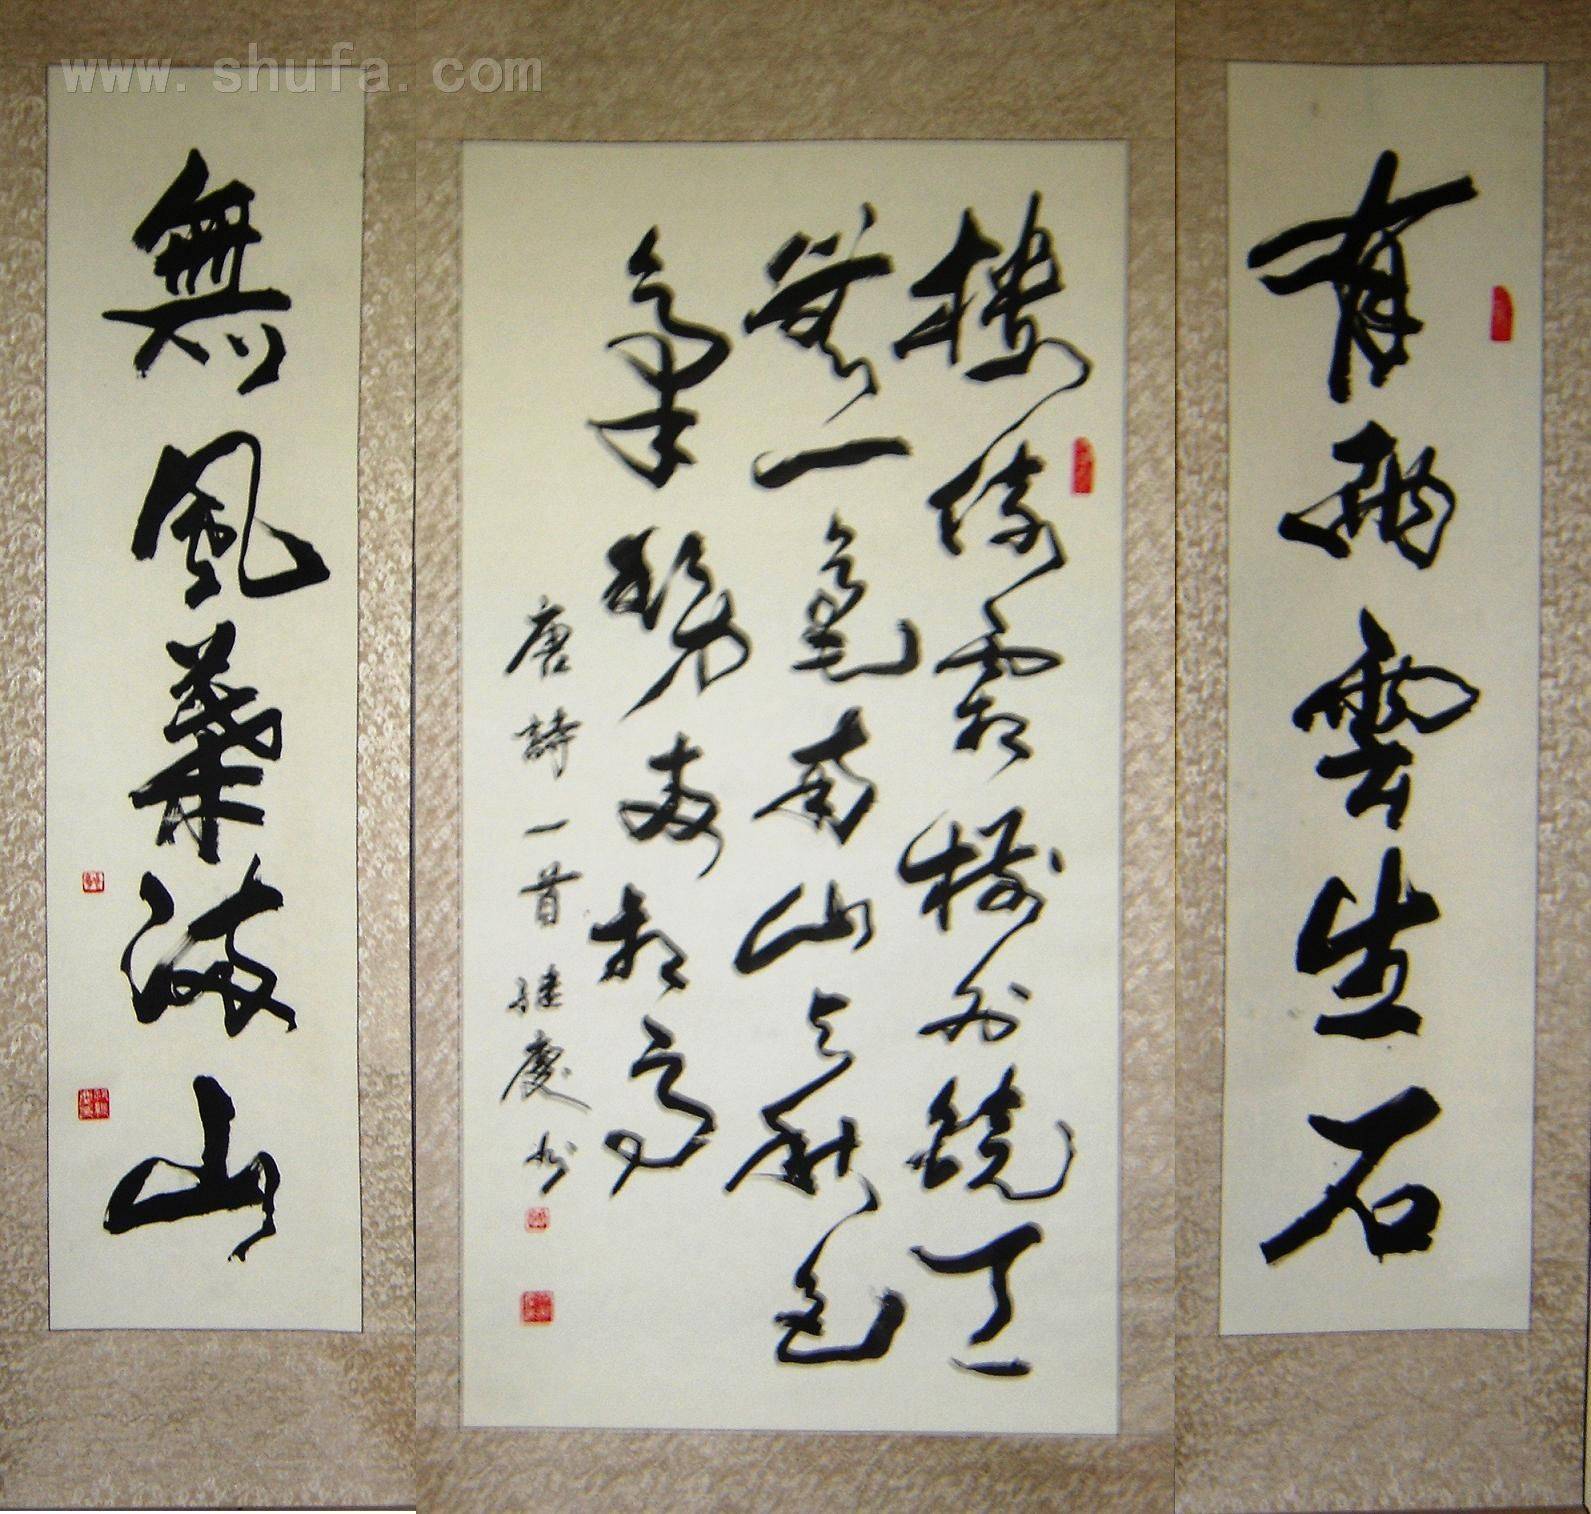 www.shufa.com
有雨雲生石
樓倚霜樹外鏡天
無一毫南山与秋色
氣勢兩相高
唐詩一首 繼慶書
無風葉滿山